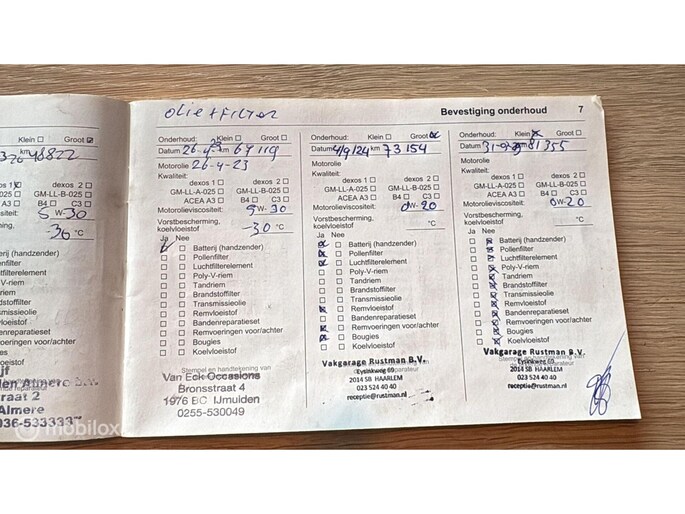 olie + filter
Bevestiging onderhoud 7
Klein ☐ Groot ☑
km 48822
dexos 1 ☒ dexos 2 ☐
GM-LL-A-025 ☐ GM-LL-B-025 ☐
A3 ☐ B4 ☐ C3 ☐
5 W-30
-36 °C
den Almere B.V.
raat 2
Almere
036-533333
mobilox
Onderhoud: Klein ☐ Groot ☐
Datum 26-4-23 km 64119
Motorolie 26-4-23
Kwaliteit:
dexos 1 ☐ dexos 2 ☐
GM-LL-A-025 ☐ GM-LL-B-025 ☐
ACEA A3 ☐ B4 ☐ C3 ☐
Motorolieviscositeit: 5 W-30
Vorstbescherming,
koelvloeistof -30 °C
Ja Nee
Batterij (handzender)
Pollenfilter
Luchtfilterelement
Poly-V-riem
Tandriem
Brandstoffilter
Transmissieolie
Remvloeistof
Bandenreparatieset
Remvoeringen voor/achter
Bougies
Koelvloeistof
Stempel en handtekening van
Van Eck Occasions
Bronsstraat 4
1976 BC IJmuiden
0255-530049
Onderhoud: Klein ☐ Groot ☒
Datum 4/9/24 km 73154
Motorolie
Kwaliteit:
dexos 1 ☐ dexos 2 ☐
GM-LL-A-025 ☐ GM-LL-B-025 ☐
ACEA A3 ☐ B4 ☐ C3 ☐
Motorolieviscositeit: 0W-20
Vorstbescherming,
koelvloeistof °C
Ja Nee
Batterij (handzender)
Pollenfilter
Luchtfilterelement
Poly-V-riem
Tandriem
Brandstoffilter
Transmissieolie
Remvloeistof
Bandenreparatieset
Remvoeringen voor/achter
Bougies
Koelvloeistof
Vakgarage Rustman B.V.
Eysinkweg 69
2014 SB HAARLEM
023 524 40 40
receptie@rustman.nl
Onderhoud: Klein ☒ Groot ☐
Datum km 81355
Motorolie
Kwaliteit:
dexos 1 ☐ dexos 2 ☐
GM-LL-A-025 ☐ GM-LL-B-025 ☐
ACEA A3 ☐ B4 ☐ C3 ☐
Motorolieviscositeit: 0W-20
Vorstbescherming,
koelvloeistof °C
Ja Nee
Batterij (handzender)
Pollenfilter
Luchtfilterelement
Poly-V-riem
Tandriem
Brandstoffilter
Transmissieolie
Remvloeistof
Bandenreparatieset
Remvoeringen voor/achter
Bougies
Koelvloeistof
Vakgarage Rustman B.V.
Eysinkweg 69
2014 SB HAARLEM
023 524 40 40
receptie@rustman.nl